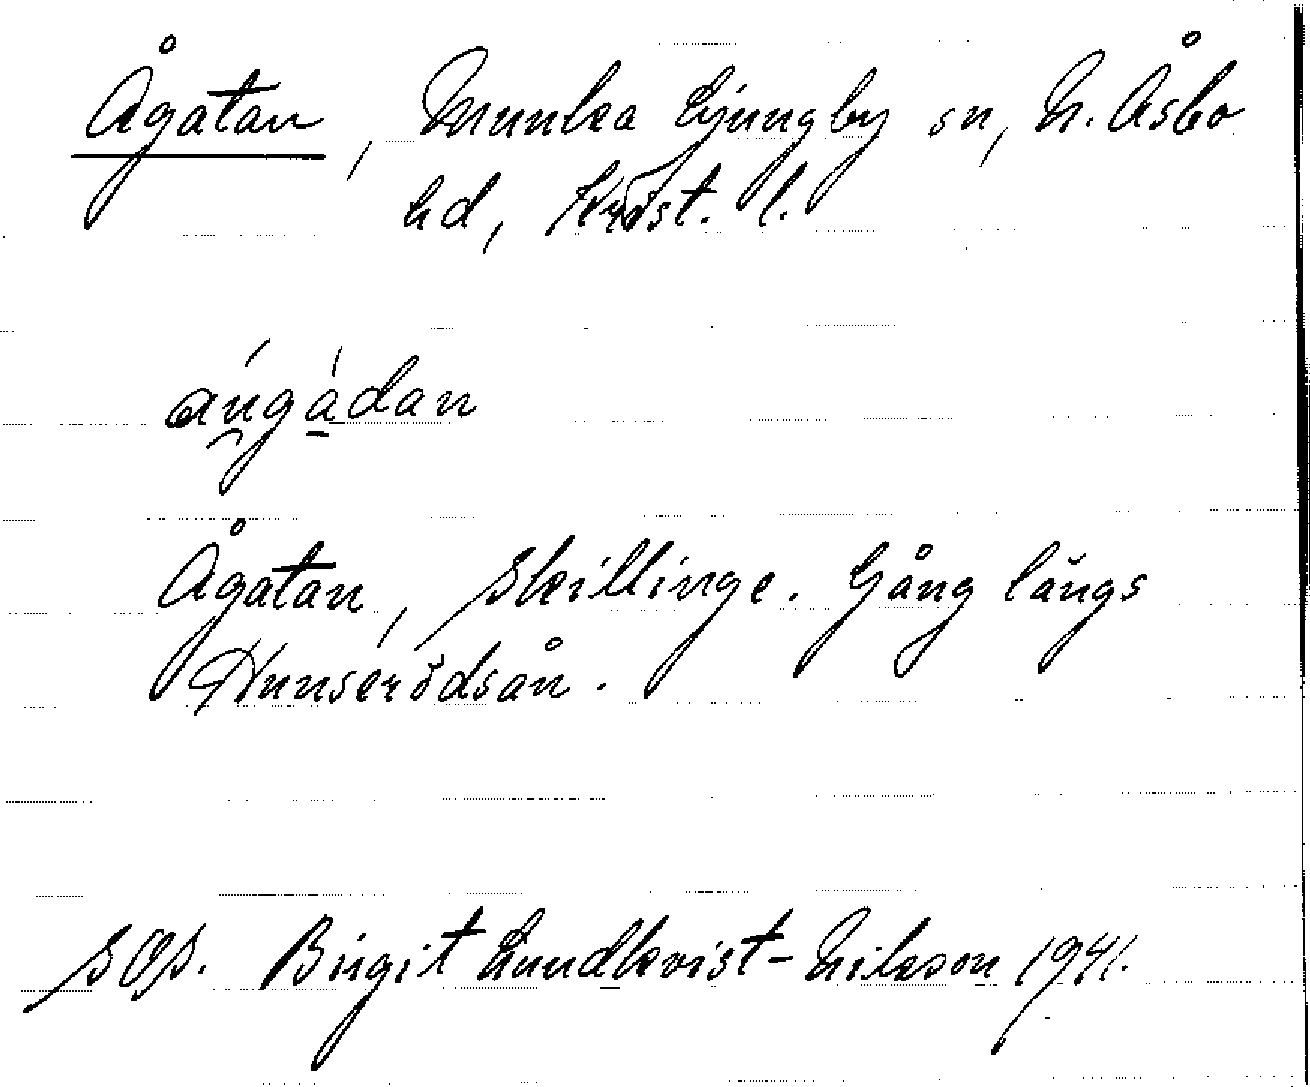 Ågatan, Munka Ljungby sn, N. Åsbo
hd, Krist. l.
Ågatan, Skillinge. Gång längs
Hunserödsån.
SOP. Birgit Lundkvist-Nilsson 1941.